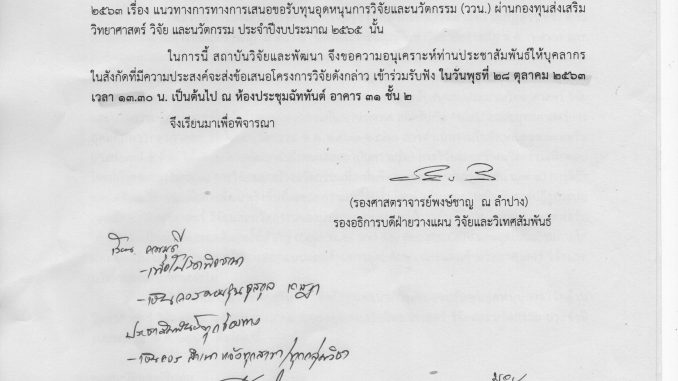 ๒๕๖๓ เรื่อง แนวทางการทางการเสนอขอรับทุนอุดหนุนการวิจัยและนวัตกรรม (ววน.) ผ่านกองทุนส่งเสริม
วิทยาศาสตร์ วิจัย และนวัตกรรม ประจำปีงบประมาณ ๒๕๖๕ นั้น
ในการนี้ สถาบันวิจัยและพัฒนา จึงขอความอนุเคราะห์ท่านประชาสัมพันธ์ให้บุคลากร
ในสังกัดที่มีความประสงค์จะส่งข้อเสนอโครงการวิจัยดังกล่าว เข้าร่วมรับฟัง ในวันพุธที่ ๒๘ ตุลาคม ๒๕๖๓
เวลา ๑๓.๓๐ น. เป็นต้นไป ณ ห้องประชุมฉัททันต์ อาคาร ๓๑ ชั้น ๒
จึงเรียนมาเพื่อพิจารณา
(รองศาสตราจารย์พงษ์ชาญ ณ ลำปาง)
รองอธิการบดีฝ่ายวางแผน วิจัยและวิเทศสัมพันธ์
เรียน คณบดี
-เพื่อโปรดพิจารณา
-เห็นควร
ประชาสัมพันธ์ทุกช่องทาง
-เห็นควร สำเนาแจ้งทุกสาขา/ทุกกลุ่มวิชา